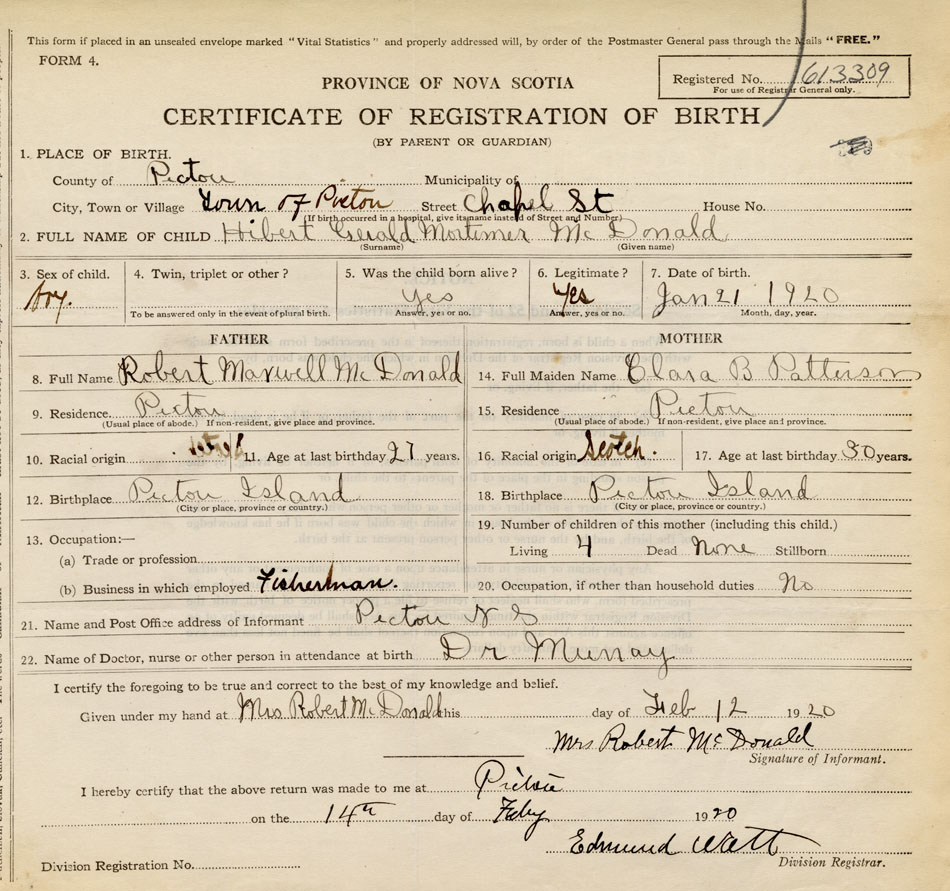 This form if placed in an unsealed envelope marked "Vital Statistics" and properly addressed will, by order of the Postmaster General pass through the Mails "FREE."
FORM 4.
PROVINCE OF NOVA SCOTIA
Registered No. 613309
For use of Registrar General only.
CERTIFICATE OF REGISTRATION OF BIRTH
(BY PARENT OR GUARDIAN)
1. PLACE OF BIRTH.
County of Pictou Municipality of
City, Town or Village Town of Pictou Street Chapel St House No.
(If birth occurred in a hospital, give its name instead of Street and Number)
2. FULL NAME OF CHILD Hibert Gerald Mortimer Mc Donald
(Surname) (Given name)
3. Sex of child. 4. Twin, triplet or other? 5. Was the child born alive? 6. Legitimate? 7. Date of birth.
boy. Yes Yes Jan 21 1920
To be answered only in the event of plural birth. Answer, yes or no. Answer, yes or no. Month, day, year.
FATHER MOTHER
8. Full Name Robert Maxwell Mc Donald 14. Full Maiden Name Clara B Patterson
9. Residence. Pictou 15. Residence Pictou
(Usual place of abode.) If non-resident, give place and province. (Usual place of abode.) If non-resident, give place and province.
10. Racial origin 11. Age at last birthday 27 years. 16. Racial origin Scotch. 17. Age at last birthday 30 years.
12. Birthplace Pictou Island 18. Birthplace Pictou Island
(City or place, province or country.) (City or place, province or country.)
13. Occupation:— 19. Number of children of this mother (including this child.)
(a) Trade or profession Living 4 Dead None Stillborn
(b) Business in which employed Fisherman. 20. Occupation, if other than household duties No
21. Name and Post Office address of Informant Pictou N S
22. Name of Doctor, nurse or other person in attendance at birth Dr Murray
I certify the foregoing to be true and correct to the best of my knowledge and belief.
Given under my hand at Mrs Robert McDonald this day of Feb 12 1920
Mrs Robert McDonald
Signature of Informant.
I hereby certify that the above return was made to me at Pictou
on the 14th day of Feby 1920
Edmund Watt
Division Registration No. Division Registrar.